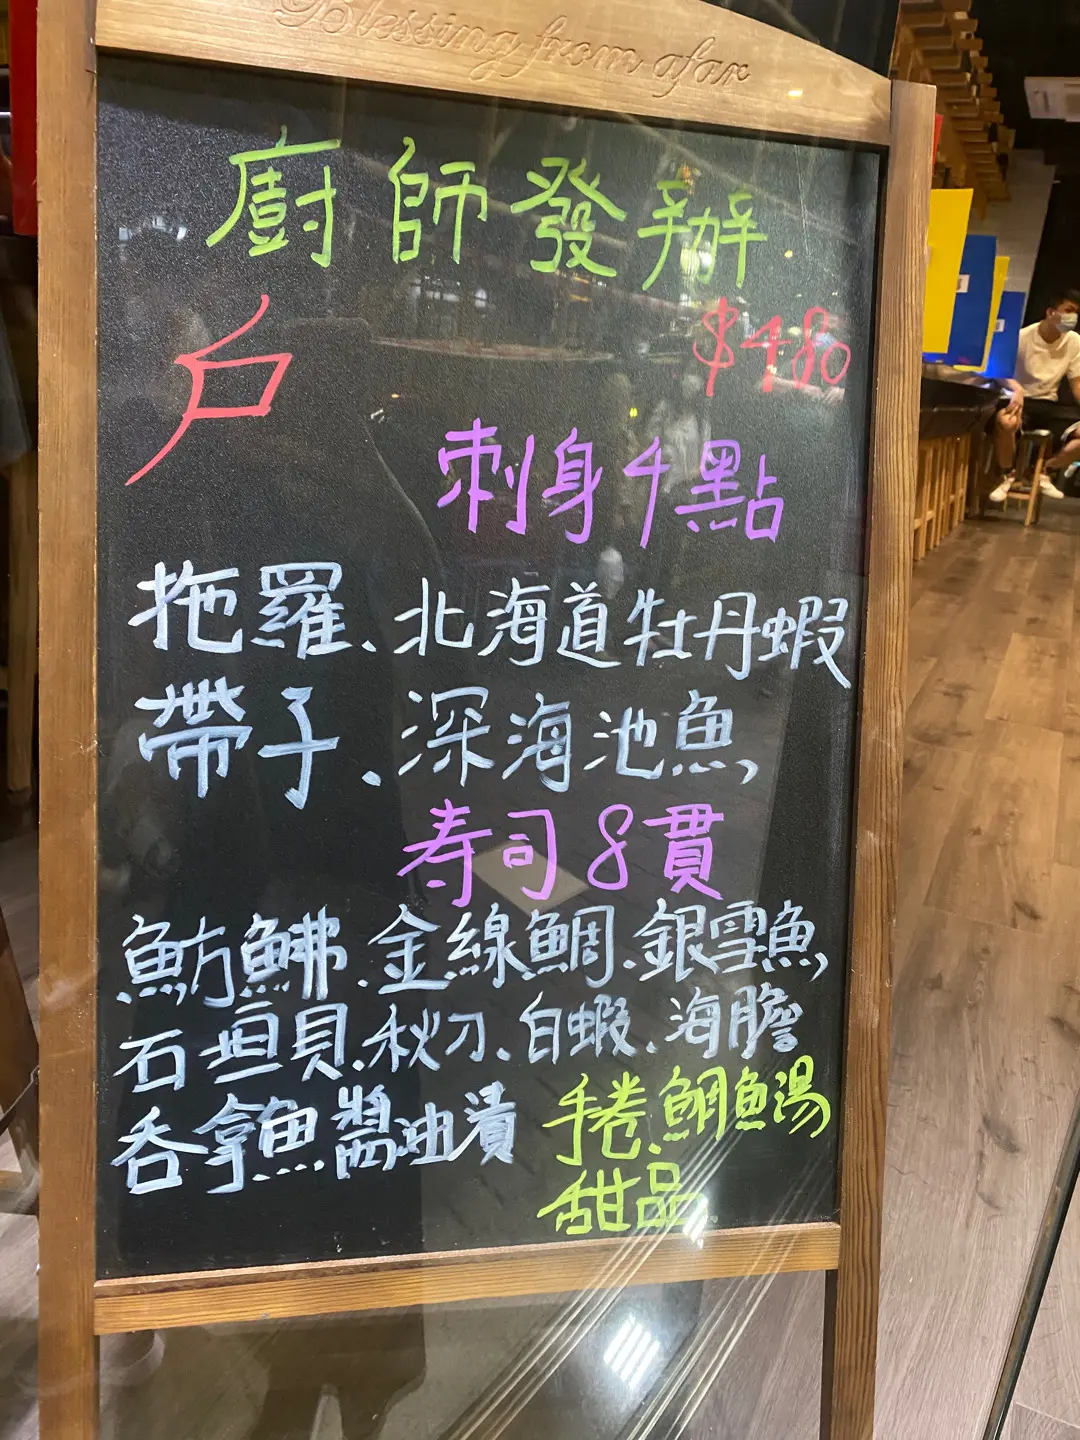 Blessing from afar
廚師發辦
戶 $480
刺身4點
拖羅、北海道牡丹蝦
帶子、深海池魚,
寿司8貫
魴鮄.金線鯛.銀雪魚,
石垣貝.秋刀.白蝦.海膽
吞拿魚.醬油漬 手卷.鯛魚湯
甜品